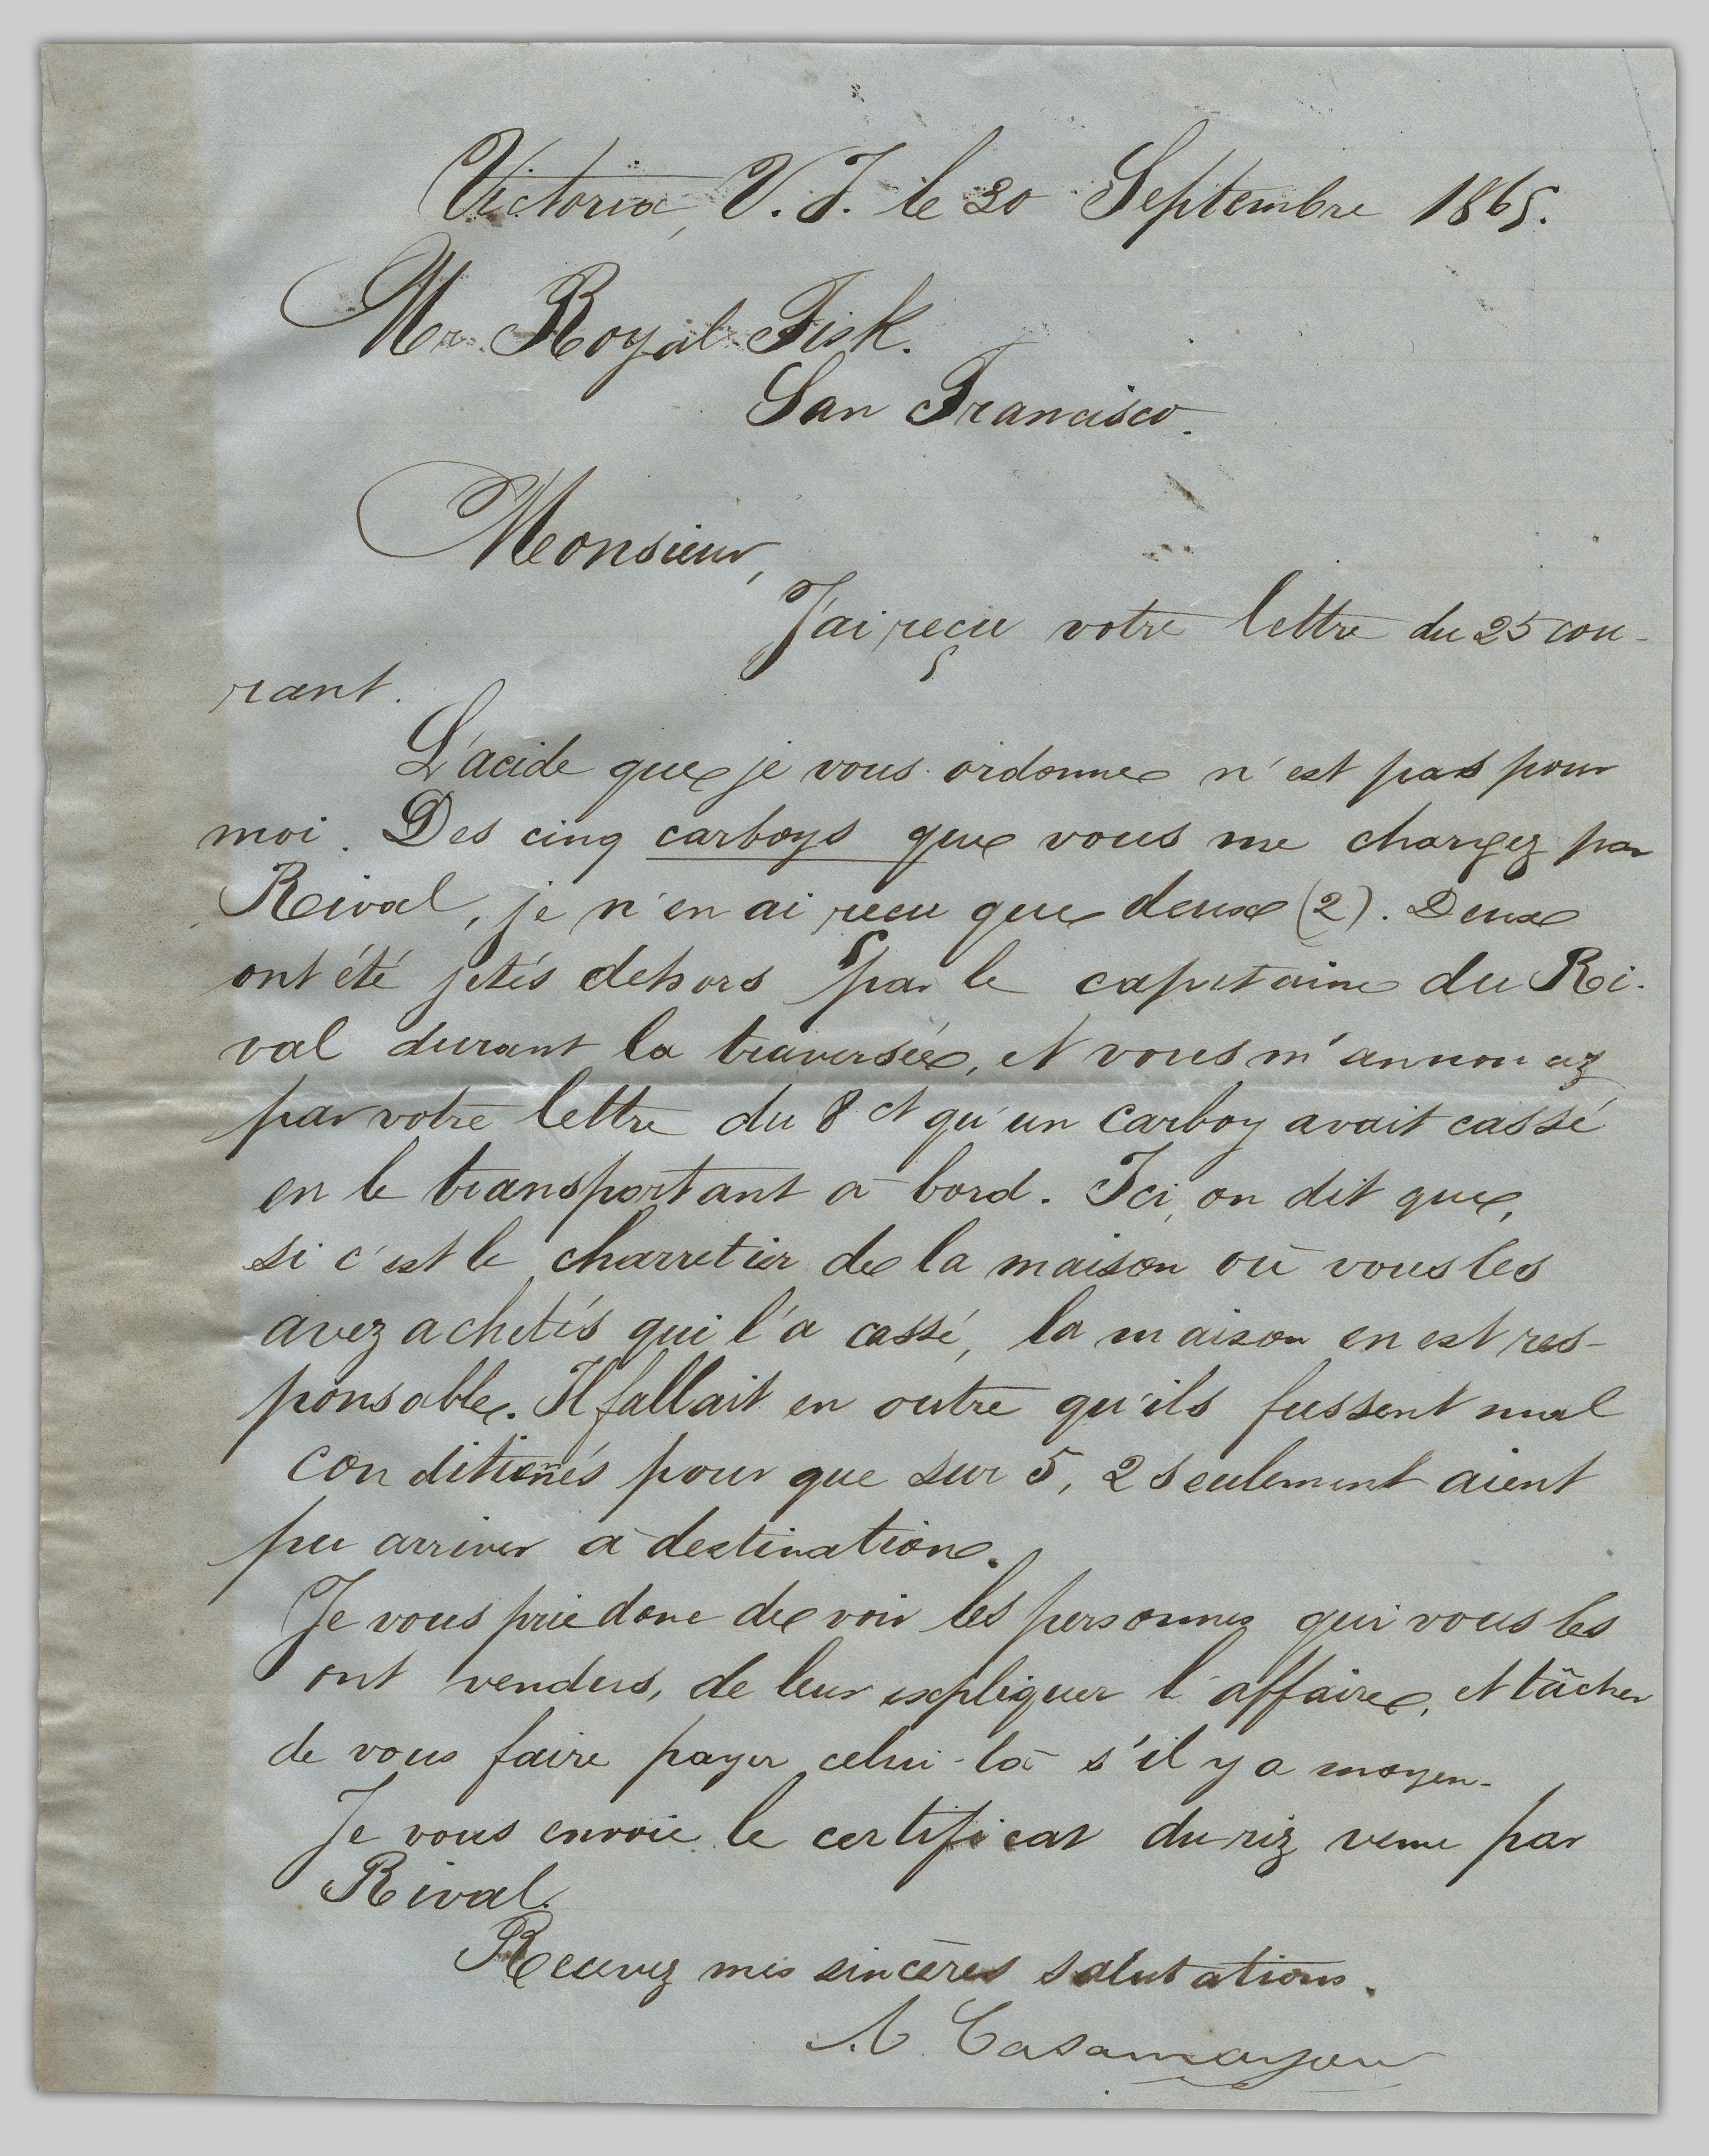 Victoria, V. I. le 30 Septembre 1865.
Mr. Royal Fisk.
San Francisco.
Monsieur,
J'ai reçu votre lettre du 25 cou-
rant.
L'acide que je vous ordonne n'est pas pour
moi. Des cinq carboys que vous me chargez par
Rival, je n'en ai reçu que deux (2). Deux
ont été jetés dehors par le capitaine du Ri-
val durant la traversée, et vous m'annoncez
par votre lettre du 8 ct qu'un carboy avait cassé
en le transportant à bord. Ici, on dit que,
si c'est le charretier de la maison où vous les
avez achetés qui l'a cassé, la maison en est res-
ponsable. Il fallait en outre qu'ils fussent mal
conditionés pour que sur 5, 2 seulement aient
pu arriver à destination.
Je vous prie donc de voir les personnes qui vous les
ont vendus, de leur expliquer l'affaire, et tâcher
de vous faire payer celui-là s'il y a moyen.
Je vous envoie le certificat du riz venu par
Rival.
Recevez mes sincères salutations.
A Casamayou